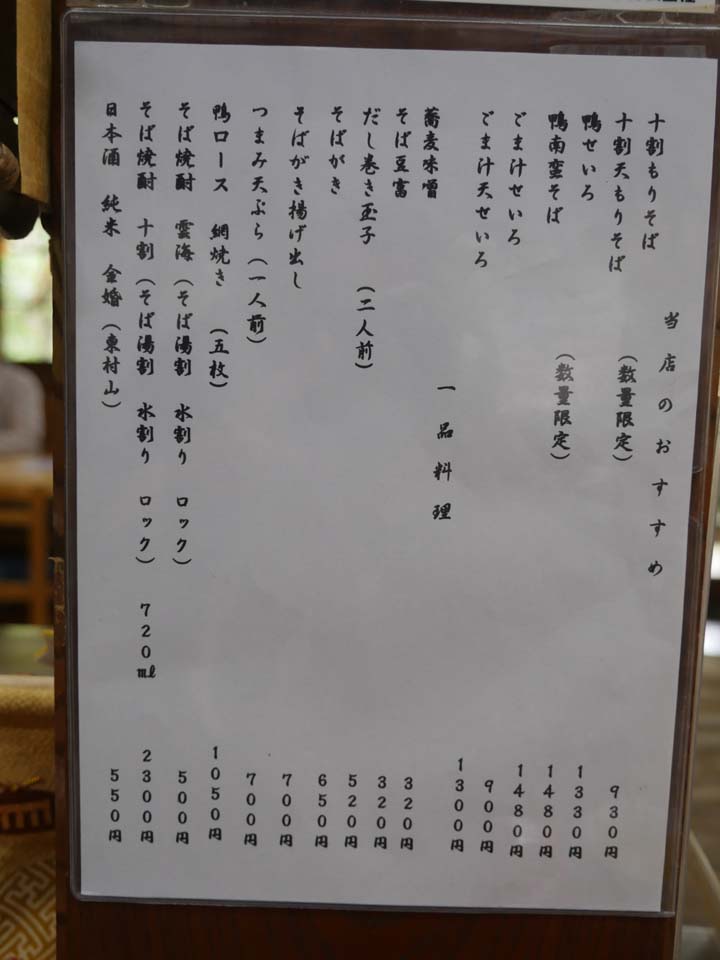 当店のおすすめ
十割もりそば 930円
十割天もりそば (数量限定) 1330円
鴨せいろ 1480円
鴨南蛮そば (数量限定) 1480円
ごま汁せいろ 900円
ごま汁天せいろ 1300円
一品料理
蕎麦味噌 320円
そば豆富 320円
だし巻き玉子 (二人前) 520円
そばがき 650円
そばがき揚げ出し 700円
つまみ天ぷら (一人前) 700円
鴨ロース 網焼き (五枚) 1050円
そば焼酎 雲海 (そば湯割 水割り ロック) 500円
そば焼酎 十割 (そば湯割 水割り ロック) 720㎖ 2300円
日本酒 純米 金婚 (東村山) 550円